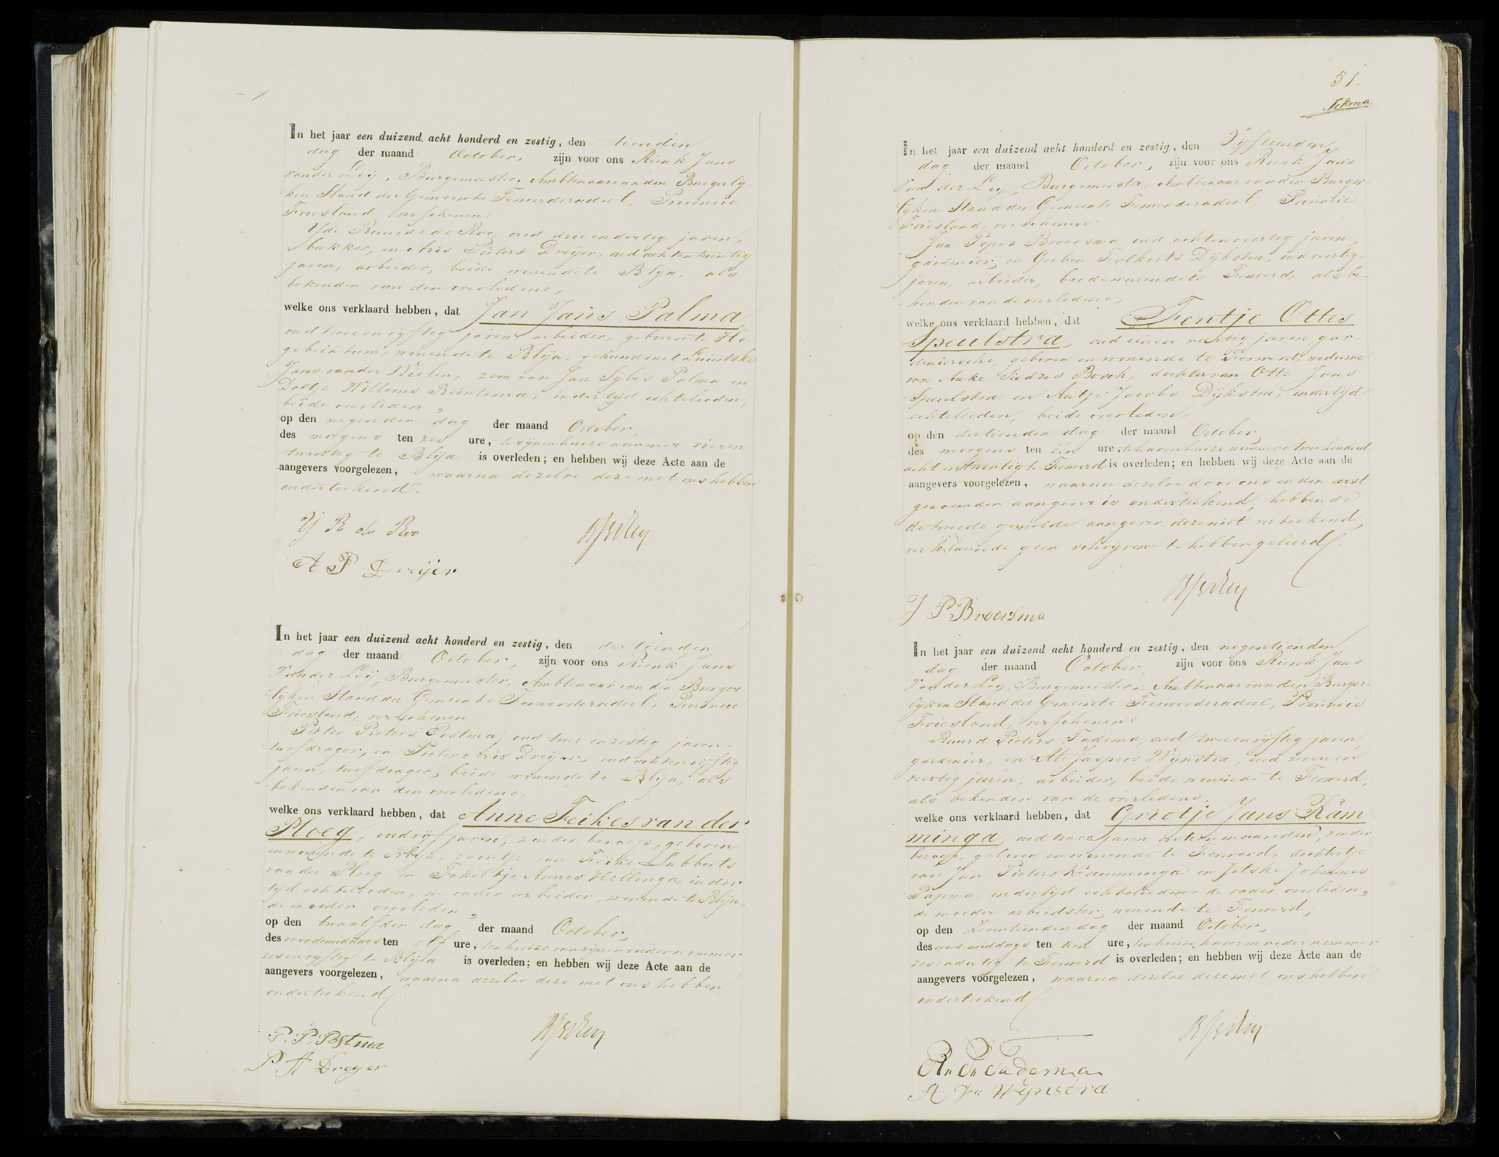 In het jaar een duizend acht honderd en zestig, den tienden
dag der maand October, zijn voor ons Rienk Jans
van der Leij, Burgemeester, Ambtenaar van den Burgerlij
ken Stand der Gemeente Ferwerderadeel, Provincie
Friesland, verschenen:
de Roo, oud jaren,
bakker, en Pieters Dreijer, oud achtentwintig
jaren, arbeider, beide wonende te Blija, als
bekenden van den overledene,
welke ons verklaard hebben, dat Jan Jans Palma
oud jaren, arbeider, geboren te Ho
gebeintum, wonende te Blija, gehuwd met
Jans van der zoon van Jan Sybes Palma en
Willems in der tijd echtelieden,
beide overleden,
op den negenden dag der maand October,
des morgens ten zes ure, nummer
te Blija is overleden; en hebben wij deze Acte aan de
aangevers voorgelezen, waarna dezelve deze met ons hebben
onderteekend.
IJ R de Roo
A P Dreijer
In het jaar een duizend acht honderd en zestig, den dertienden
dag der maand October, zijn voor ons Rienk Jans
van der Leij, Burgemeester, Ambtenaar van den Burger
lijken Stand der Gemeente Ferwerderadeel, Provincie
Friesland, verschenen
Pieter Pieters Postma, oud twee en zestig jaren,
turfdrager, en Pieter Dreijer, oud achtenvijftig
jaren, turfdrager, beide wonende te Blija, als
bekenden van den overledene,
welke ons verklaard hebben, dat Anne Feikes van der
Ploeg, oud vijf jaren, zonder beroep, geboren
en wonende te Blija, zoontje van Feike Lubberts
van der Ploeg en Annes Hellinga, in der
tijd echtelieden, de vader arbeider, wonende te Blija,
de moeder overleden,
op den twaalfden dag der maand October,
des voormiddags ten elf ure, ten huize van zijnen vader nummer
zesenvijftig te Blija is overleden; en hebben wij deze Acte aan de
aangevers voorgelezen, waarna dezelve deze met ons hebben
onderteekend
P. P. Postma
P A Dreyer
51.
In het jaar een duizend acht honderd en zestig, den Vijftienden
dag der maand October, zijn voor ons Rienk Jans
van der Leij, Burgemeester, Ambtenaar van den Burger
lijken Stand der Gemeente Ferwerderadeel Provincie
Friesland, verschenen:
Jan Broersma oud achtenveertig jaren,
gardenier, en Folkerts Dijkstra, oud veertig
jaren, arbeider, beide wonende te Ferwerd, als be
kenden van de overledene,
welke ons verklaard hebben, dat Fentje Ottes
Speulstra, oud jaren gar
denierske, geboren en wonende te Ferwerd, weduwe
van Auke Sjoerds Bosch, dochter van Otte Jans
Speulstra en Antje Jacobs Dijkstra, in der tijd
echtelieden, beide overleden,
op den dertienden dag der maand October
des morgens ten een ure, nummer twee honderd
acht en twintig te Ferwerd is overleden; en hebben wij deze Acte aan de
aangevers voorgelezen, waarna dezelve door ons en den eerst
genoemden aangever is onderteekend, hebbende
de tweede gemelde aangever deze niet geteekend,
verklarende geen schrijven te hebben geleerd.
J P Broersma
In het jaar een duizend acht honderd en zestig, den negentienden
dag der maand October zijn voor ons Rienk Jans
van der Leij, Burgemeester, Ambtenaar van den Burger
lijken Stand der Gemeente Ferwerderadeel, Provincie
Friesland, verschenen:
Ruurd Pieters Tadema, oud tweeenvijftig jaren,
gardenier, en Ate Jaspers Wijnstra, oud
veertig jaren, arbeider, beide wonende te Ferwerd,
als bekenden van de overledene,
welke ons verklaard hebben, dat Grietje Jans Kam
minga, oud twee jaren maanden, zonder
beroep, geboren en wonende te Ferwerd, dochtertje
van Jan Pieters Kamminga en Jetske Johannes
in der tijd echtelieden, de vader overleden,
de moeder arbeidster, wonende te Ferwerd,
op den dag der maand October,
des voormiddags ten tien ure, ten huize harer moeder nummer
te Ferwerd is overleden; en hebben wij deze Acte aan de
aangevers voorgelezen, waarna dezelve deze met ons hebben
onderteekend
R. P. Tadema